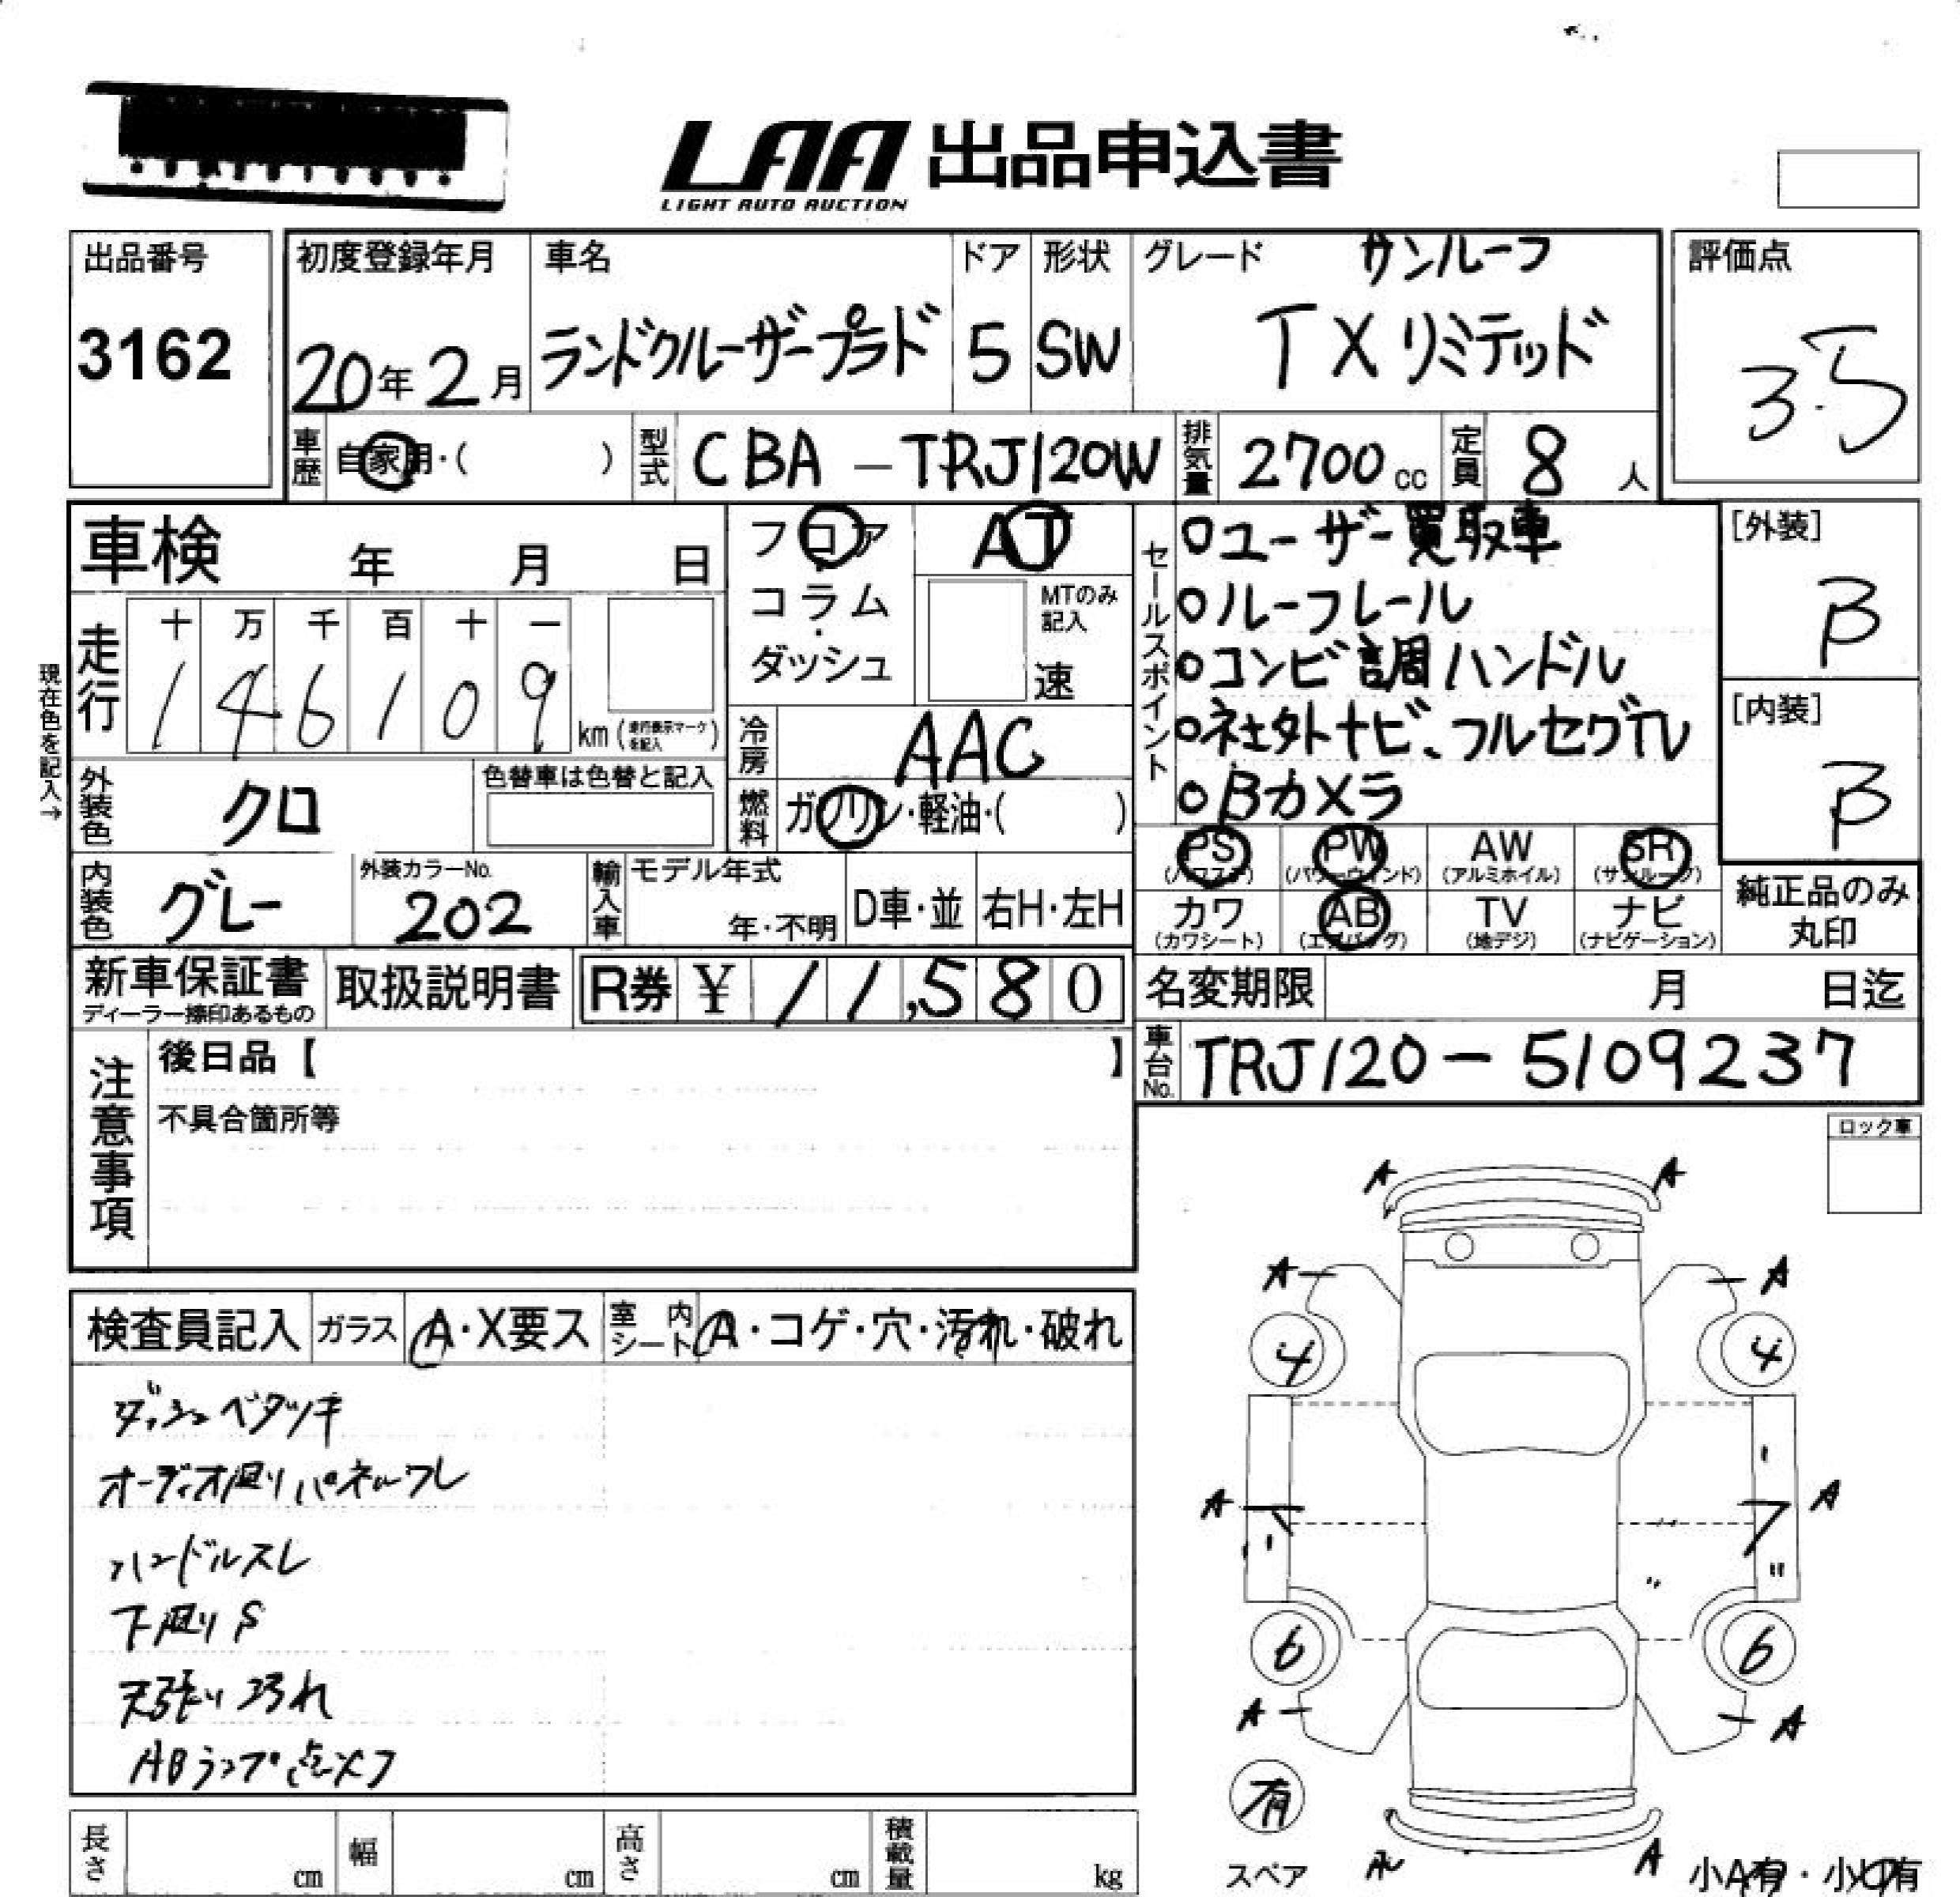 LAA 出品申込書
LIGHT AUTO AUCTION
出品番号
3162
初度登録年月
20年2月
車名
ランドクルーザープラド
ドア
5
形状
SW
グレード
サンルーフ
TXリミテッド
評価点
3.5
車歴
自家用・( )
型式
CBA-TRJ120W
排気量
2700cc
定員
8人
車検 年 月 日
フロア
コラム
・
ダッシュ
AT
MTのみ記入
速
セールスポイント
○ユーザー買取車
○ルーフレール
○コンビ調ハンドル
○社外ナビ、フルセグTV
○Bカメラ
[外装]
B
[内装]
B
現在色を記入→
走行
十 万 千 百 十 一
1 4 6 1 0 9 km (走行表示マークを記入)
冷房
AAC
外装色
クロ
色替車は色替と記入
燃料
ガソリン・軽油・( )
PS AW PW SR
(パワステ) (パワーウインド) (アルミホイル) (サンルーフ)
カワ AB TV ナビ
(カワシート) (エアバッグ) (地デジ) (ナビゲーション)
純正品のみ
丸印
内装色
グレー
外装カラーNo.
202
輸入車
モデル年式
年・不明
D車・並
右H・左H
新車保証書
ディーラー捺印あるもの
取扱説明書
R券 ¥ 11,580
名変期限 月 日迄
車台No.
TRJ120-5109237
注意事項
後日品【 】
不具合箇所等
ロック車
検査員記入
ガラス
A・X要ス
室内シート
A・コゲ・穴・汚れ・破れ
ダッシュベタツキ
オーディオ廻りパネルワレ
ハンドルスレ
下廻りS
天張り汚れ
ABランプ点メツ
A A
A A
4 4
A A
6 6
A A
有
スペア
A
小A有・小U有
長さ cm
幅 cm
高さ cm
積載量 kg